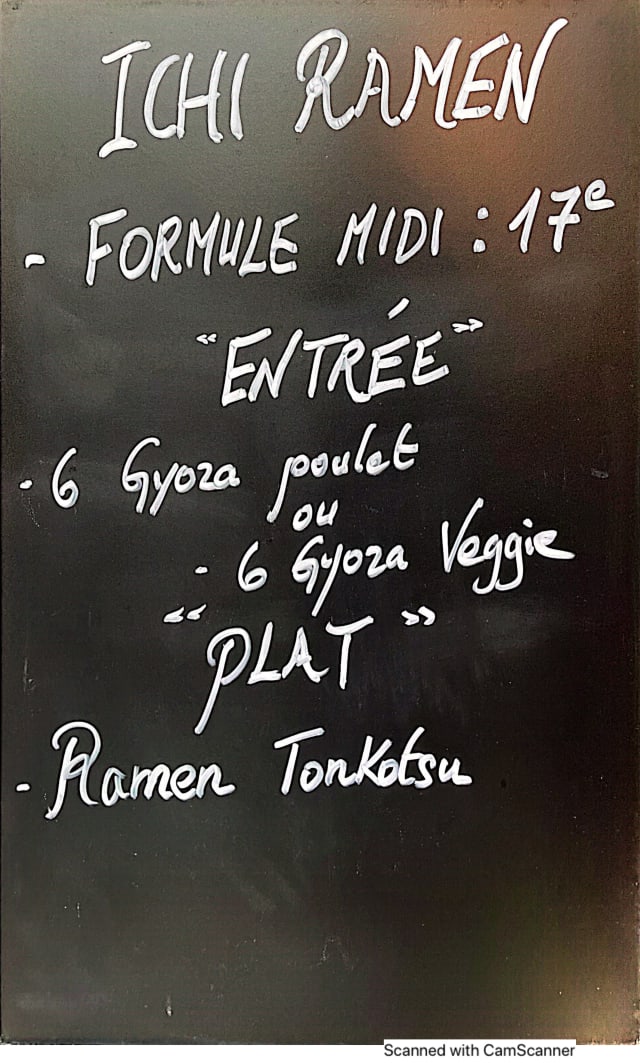 ICHI RAMEN
- FORMULE MIDI : 17e
"ENTRÉE"
- 6 Gyoza poulet
ou
- 6 Gyoza Veggie
"PLAT"
- Ramen Tonkotsu
Scanned with CamScanner